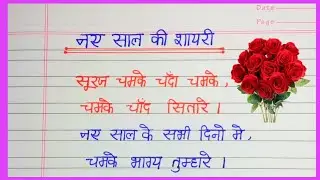 Date
Page
नए साल की शायरी
सूरज चमके चँदा चमके,
चमके चाँद सितारे ।
नए साल के सभी दिनो मे,
चमके भाग्य तुम्हारे ।